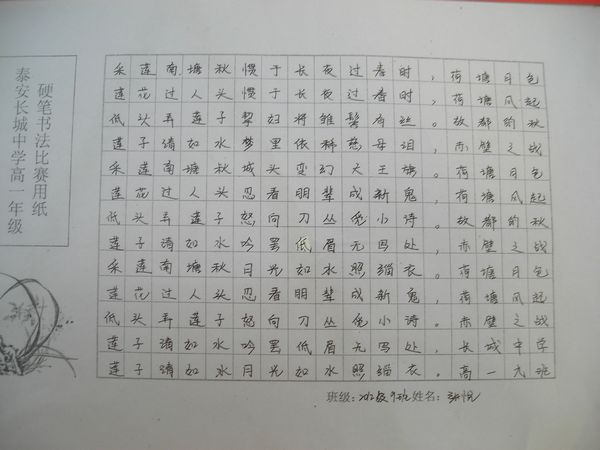 硬笔书法比赛用纸
泰安长城中学高一年级
采莲南塘秋惯于长夜过春时，荷塘月色
莲花过人头惯于长夜过春时，荷塘风起
低头弄莲子挈妇将雏鬓有丝。故都的秋
莲子清如水梦里依稀慈母泪，赤壁之战
采莲南塘秋城头变幻大王旗。荷塘月色
莲花过人头忍看朋辈成新鬼，荷塘风起
低头弄莲子怒向刀丛觅小诗。故都的秋
莲子清如水吟罢低眉无写处，赤壁之战
采莲南塘秋月光如水照缁衣。荷塘月色
莲花过人头忍看朋辈成新鬼，荷塘风起
低头弄莲子怒向刀丛觅小诗。赤壁之战
莲子清如水吟罢低眉无写处，长城中学
莲子清如水月光如水照缁衣。高一九班
班级：九班姓名：悦